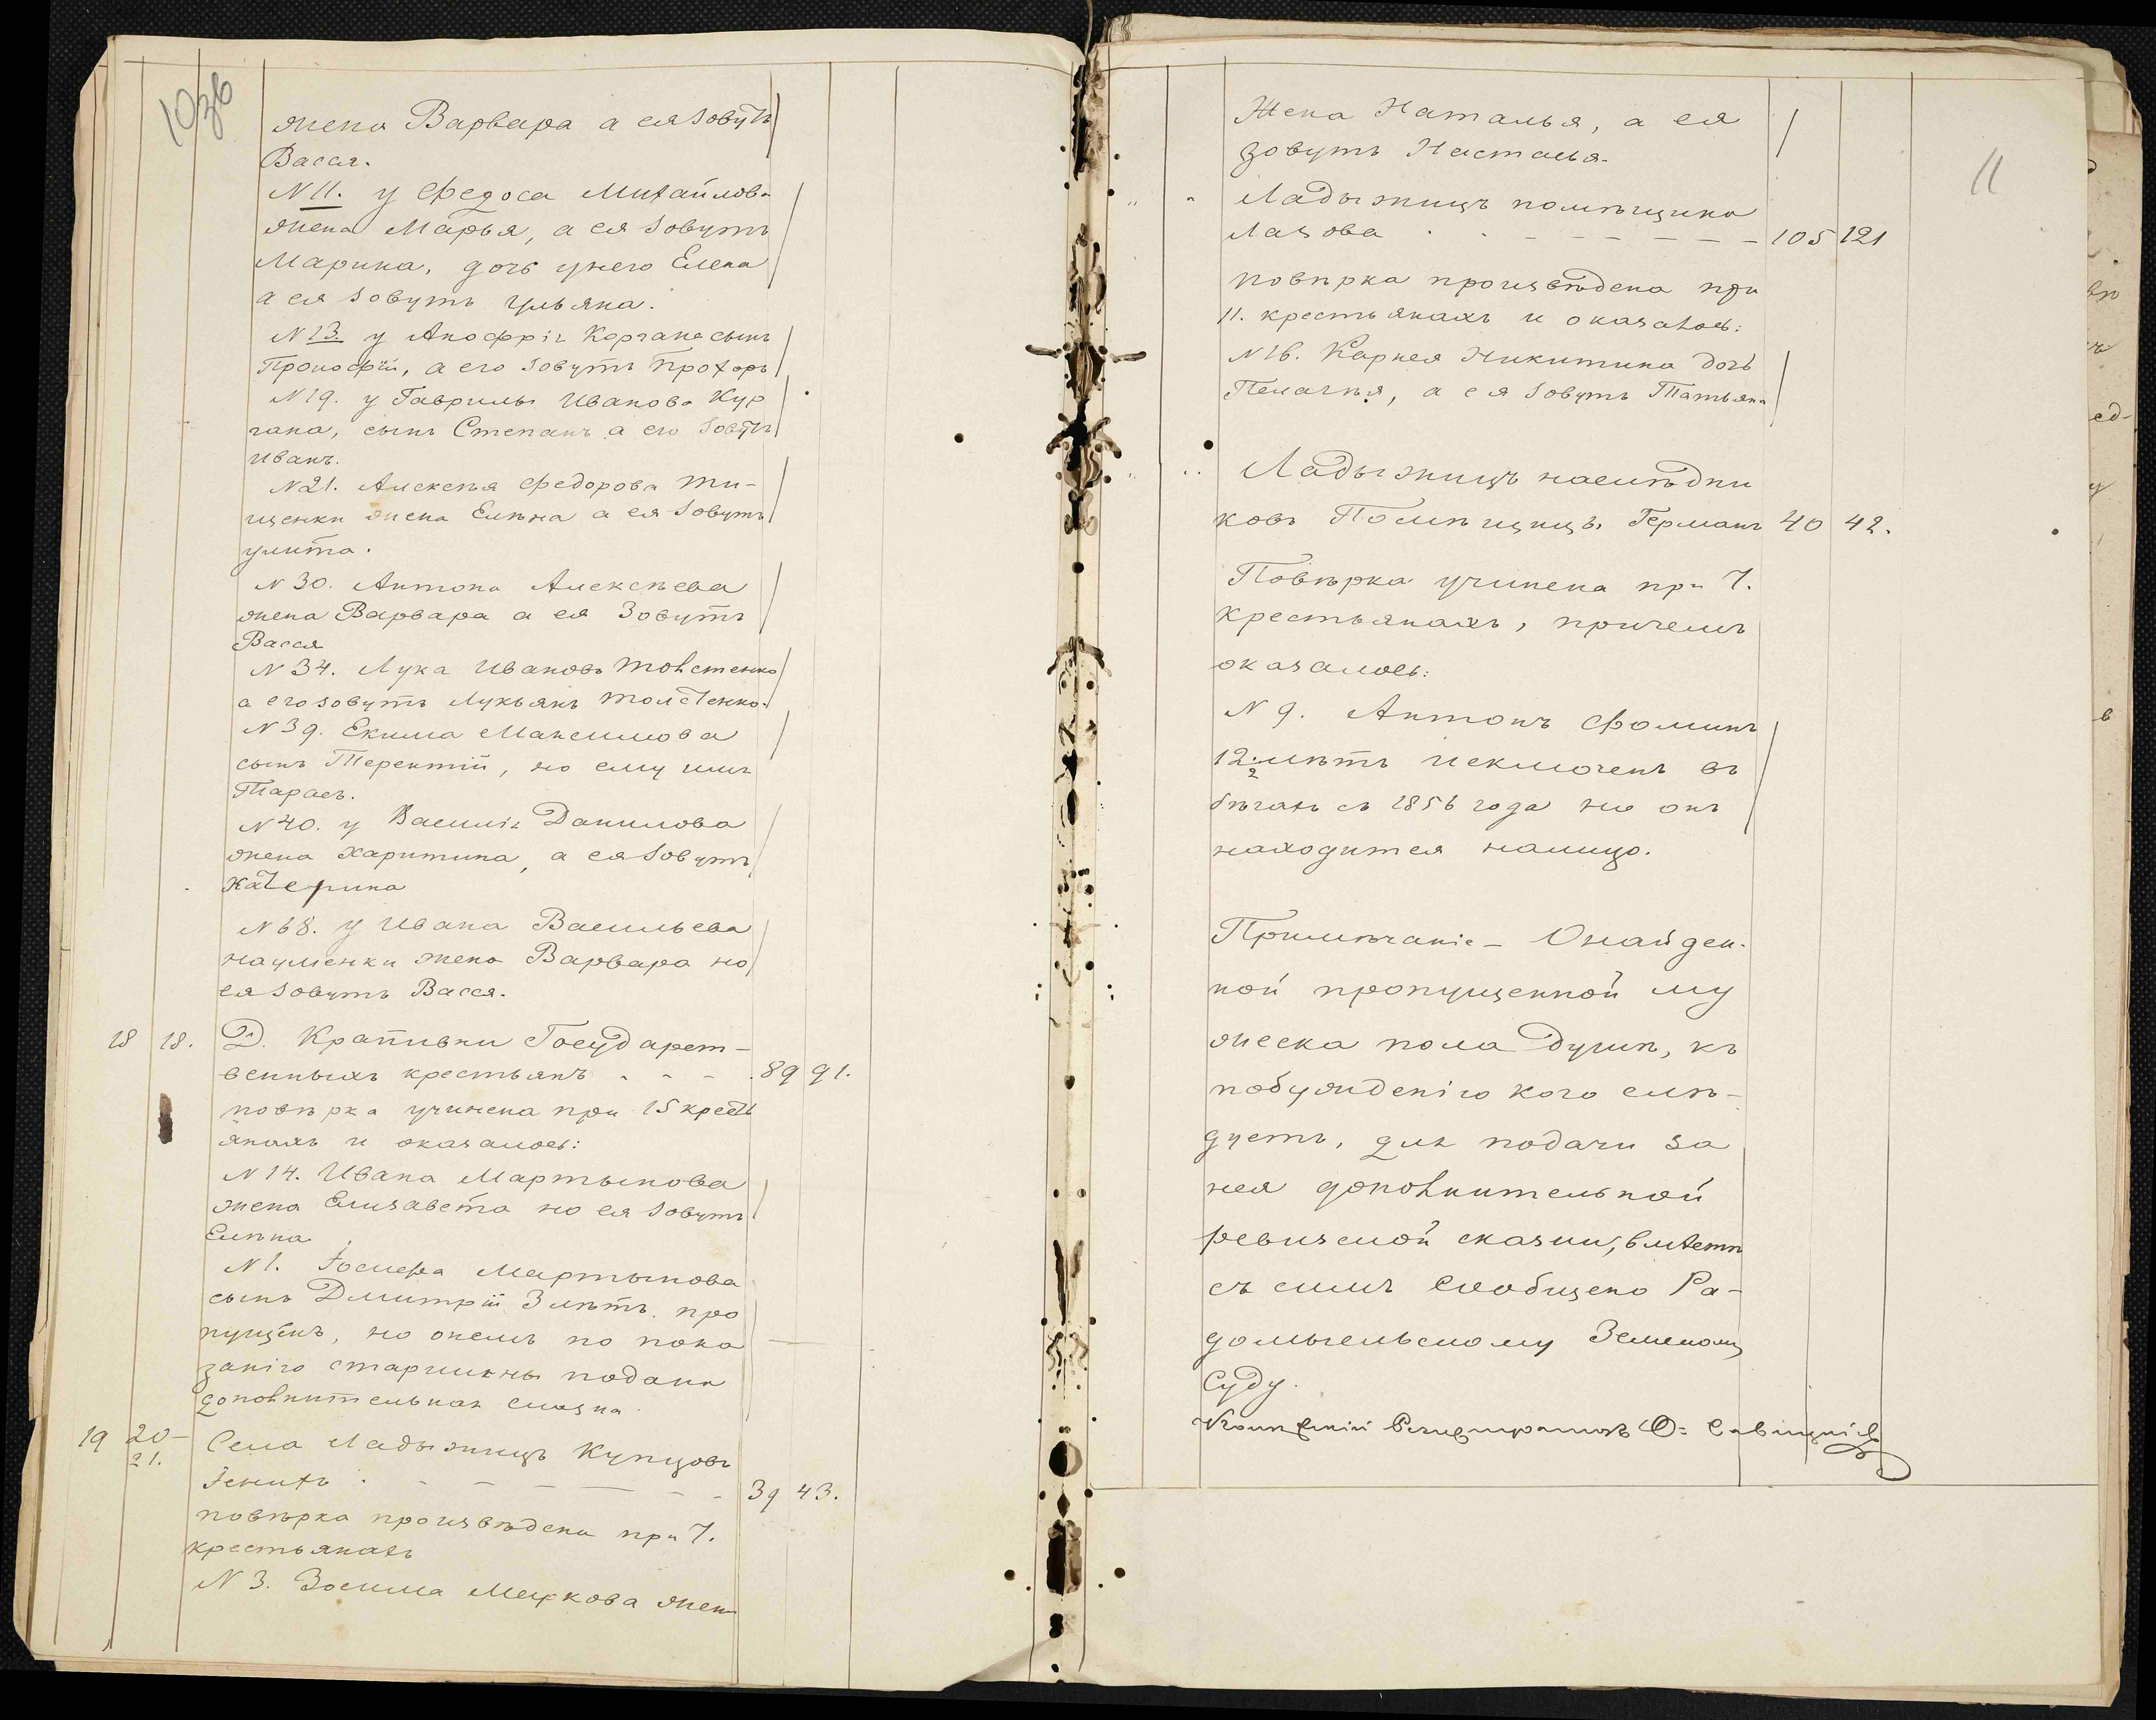 10 зв
жена Варвара а ея зовутъ
Васся.
N 11. у Федоса Михайлова
жена Марья, а ея зовутъ
Марина, дочь у него Елена
а ея зовутъ Ульяна.
N 13. у Анофрія Коргана сынъ
Прокофій, а его зовутъ Прохоръ
N 19. у Гаврилы Иванова Кур
гана, сынъ Степанъ а его зовутъ
Иванъ.
N 21. Алексѣя Федорова Ти-
щенки жена Елѣна а ея зовутъ
Улита.
N 30. Антона Алексѣева
жена Варвара а ея зовутъ
Васся
N 34. Лука Ивановъ Товстенко
а его зовутъ Лукьянъ Толстенко.
N 39. Екима Максимова
сынъ Терентій, но ему имя
Тарасъ.
N 40. у Василія Данилова
жена Харитина, а ея зовутъ
Катерина
N 68. у Ивана Васильева
Науменки жена Варвара но
ея зовутъ Васся.
18 18. Д. Крапивни Государст-
венныхъ крестьянъ - - - 89 91.
повѣрка учинена при 15 кресть
янахъ и оказалось:
N 14. Ивана Мартынова
жена Елизавета но ея зовутъ
Елѣна
N 1. Іосифа Мартынова
сынъ Дмитрій 3 лѣтъ про
пущенъ, но о немъ по пока
занію старшины подана
дополнительная сказка.
19 20- Села Ладыжичъ Купцовъ
21.
- - - - - - 39 43.
повѣрка произвѣдена при 7.
крестьянахъ
N 3. Зосима жена
Жена Наталья, а ея
зовутъ Настасья.
11
" " Ладыжичъ помѣщика
Лазова - - - - - - 105 121
повѣрка произвѣдена при
11. крестьянахъ и оказалось:
N 16. Карнея Никитина дочь
Пелагѣя, а ея зовутъ Татьяна
" " Ладыжичъ наслѣдни
ковъ Помѣщицы Германъ 40 42.
Повѣрка учинена при 7.
крестьянахъ, причемъ
оказалось:
N 9. Антонъ Фоминъ
12 1/2 лѣтъ исключенъ въ
бѣгахъ съ 1856 года но онъ
находится налицо.
Примѣчаніе - О найден-
ной пропущенной му
жеска пола душѣ, къ
побужденію кого слѣ-
дуетъ, для подачи за
нея дополнительной
ревизской сказки, вмѣстѣ
съ симъ сообщено Ра-
домысльскому Земскому
Суду.
Коллежскій Регистраторъ Савицкій